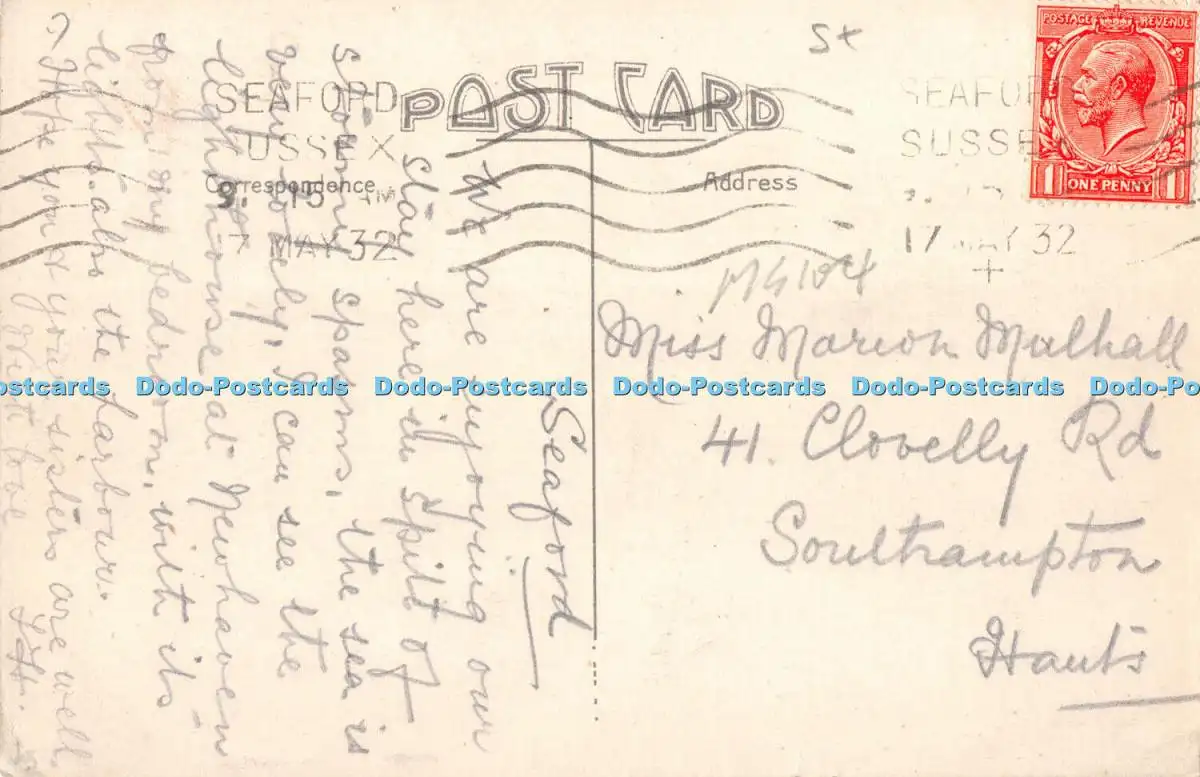 St
POST CARD
Correspondence
Address
POSTAGE REVENUE
1 ONE PENNY 1
SEAFORD
SUSSEX
15 PM
MAY 32
SEAFORD
SUSSEX
17 MAY 32
Seaford
We are enjoying our
stay here in spite of
stormy spasms, the sea is
very lovely, I can see the
lighthouse at Newhaven
from my bedroom, with its
lights. also the harbour.
I Hope you & your sisters are well
love
Miss Marion Mulhall
41. Clovelly Rd
Southampton
Hants
Dodo-Postcards Dodo-Postcards Dodo-Postcards Dodo-Postcards Dodo-Postcards